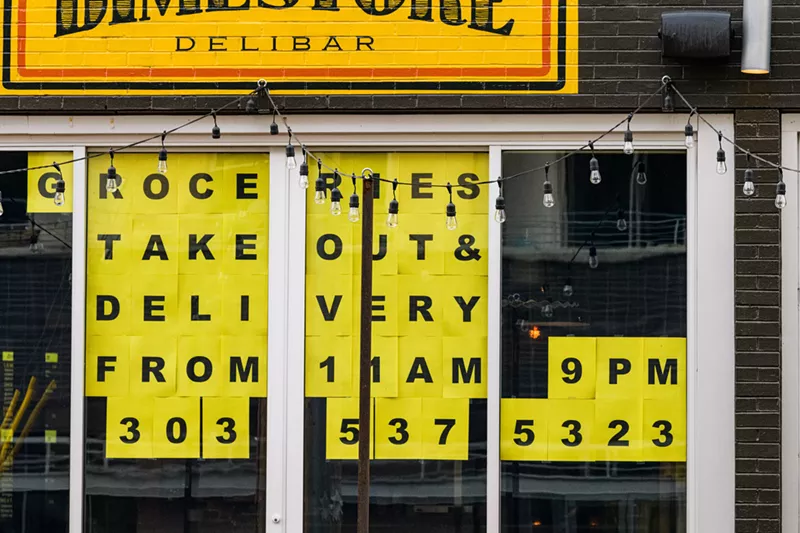 DIMESTORE
DELIBAR
GROCERIES
TAKE OUT&
DELIVERY
FROM 11AM 9PM
303 537 5323